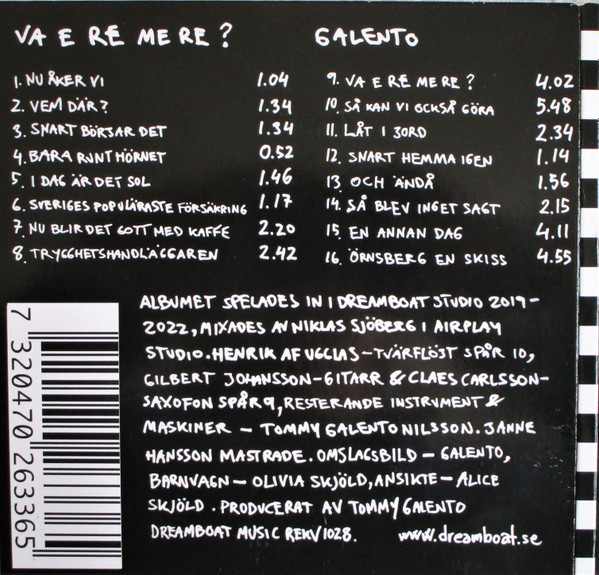 VA E RE ME RE?
GALENTO
1. NU ÅKER VI 1.04
2. VEM DÄR? 1.34
3. SNART BÖRJAR DET 1.34
4. BARA RUNT HÖRNET 0.52
5. I DAG ÄR DET SOL 1.46
6. SVERIGES POPULÄRASTE FÖRSÄKRING 1.17
7. NU BLIR DET GOTT MED KAFFE 2.20
8. TRYGGHETSHANDLÄGGAREN 2.42
9. VA E RE ME RE? 4.02
10. SÅ KAN VI OCKSÅ GÖRA 5.48
11. LÅT I JORD 2.34
12. SNART HEMMA IGEN 1.14
13. OCH ÄNDÅ 1.56
14. SÅ BLEV INGET SAGT 2.15
15. EN ANNAN DAG 4.11
16. ÖRNSBERG EN SKISS 4.55
ALBUMET SPELADES IN I DREAMBOAT STUDIO 2019-
2022, MIXADES AV NIKLAS SJÖBERG I AIRPLAY
STUDIO. HENRIK AF UGGLAS - TVÄRFLÖJT SPÅR 10,
GILBERT JOHANSSON - GITARR & CLAES CARLSSON -
SAXOFON SPÅR 9, RESTERANDE INSTRUMENT &
MASKINER - TOMMY GALENTO NILSSON. JANNE
HANSSON MASTRADE. OMSLAGSBILD - GALENTO,
BARNVAGN - OLIVIA SKJÖLD, ANSIKTE - ALICE
SKJÖLD. PRODUCERAT AV TOMMY GALENTO
DREAMBOAT MUSIC REKV1028. www.dreamboat.se
7 320470 263365